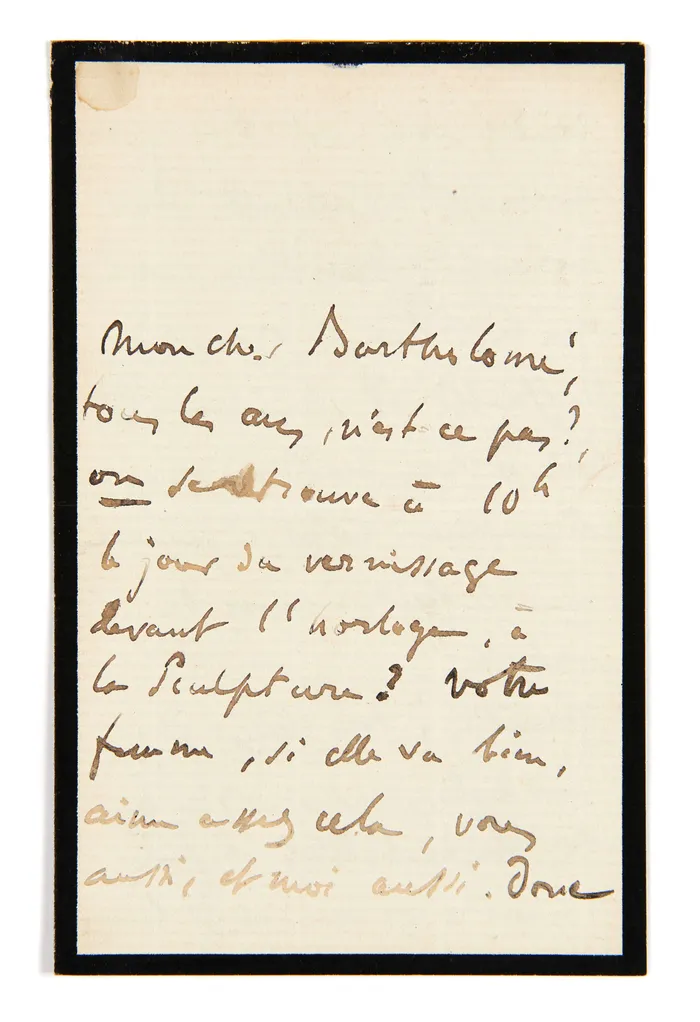 mon cher Bartholomé,
tous les ans, n'est ce pas?,
on se retrouve à 10h
le jour du vernissage
devant l'horloge, à
la Sculpture? votre
femme, si elle va bien,
aime assez cela, vous
aussi, et moi aussi. Donc